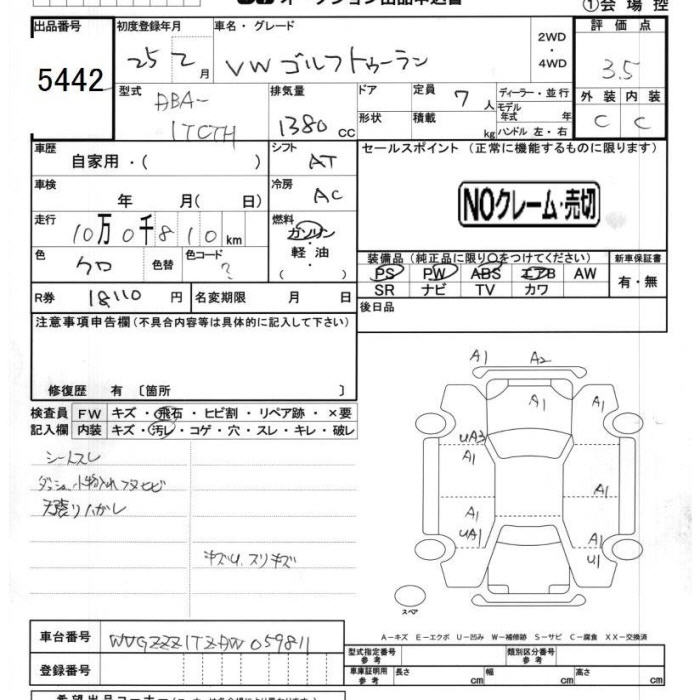 ①会場控
出品番号 初度登録年月 車名・グレード 2WD・4WD 評価点
5442 25 2月 VW ゴルフトゥーラン 3.5
型式 排気量 ドア 定員 7人 ディーラー・並行 外装 内装
ABA- 1380cc 形状 積載 kg モデル年式 年 C C
1TCTH ハンドル 左・右
車歴 自家用・( ) シフト AT セールスポイント (正常に機能するものに限ります)
車検 年 月( 日) 冷房 AC NOクレーム・売切
走行 10万0千810km 燃料 ガソリン・軽油・( )
色 クロ 色替 色コード ? 装備品(純正品に限り○をつけてください) 新車保証書
PS PW ABS エアB AW 有・無
R券 18110円 名変期限 月 日 SR ナビ TV カワ
注意事項申告欄(不具合内容等は具体的に記入して下さい) 後日品
修復歴 有 [箇所 ]
検査員 FW キズ・飛石・ヒビ割・リペア跡・×要
記入欄 内装 キズ・汚レ・コゲ・穴・スレ・キレ・破レ
A1 A2
A1 A1
UA3
A1
A1
A1
UA1 A1
U1
シートスレ
ダッシュ小物入れフタヒビ
天張りハガレ
キズU、スリキズ
スペア
A−キズ E−エクボ U−凹み W−補修跡 S−サビ C−腐食 XX−交換済
車台番号 WVGZZZ1TZDW059811 型式指定番号 参考 類別区分番号 参考
登録番号 車庫証明用 参考 長さ cm 幅 cm 高さ cm